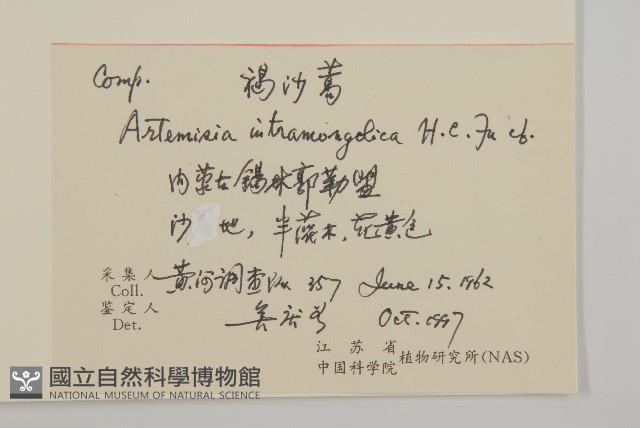 Comp. 褐沙蒿
Artemisia intramongolica H.C. Fu
内蒙古锡林郭勒盟
沙地，半灌木，花黄色
采集人 Coll. 黄河调查队 357 June 15. 1962
鉴定人 Det. Oct. 1997
江苏省
中国科学院 植物研究所(NAS)
國立自然科學博物館
NATIONAL MUSEUM OF NATURAL SCIENCE